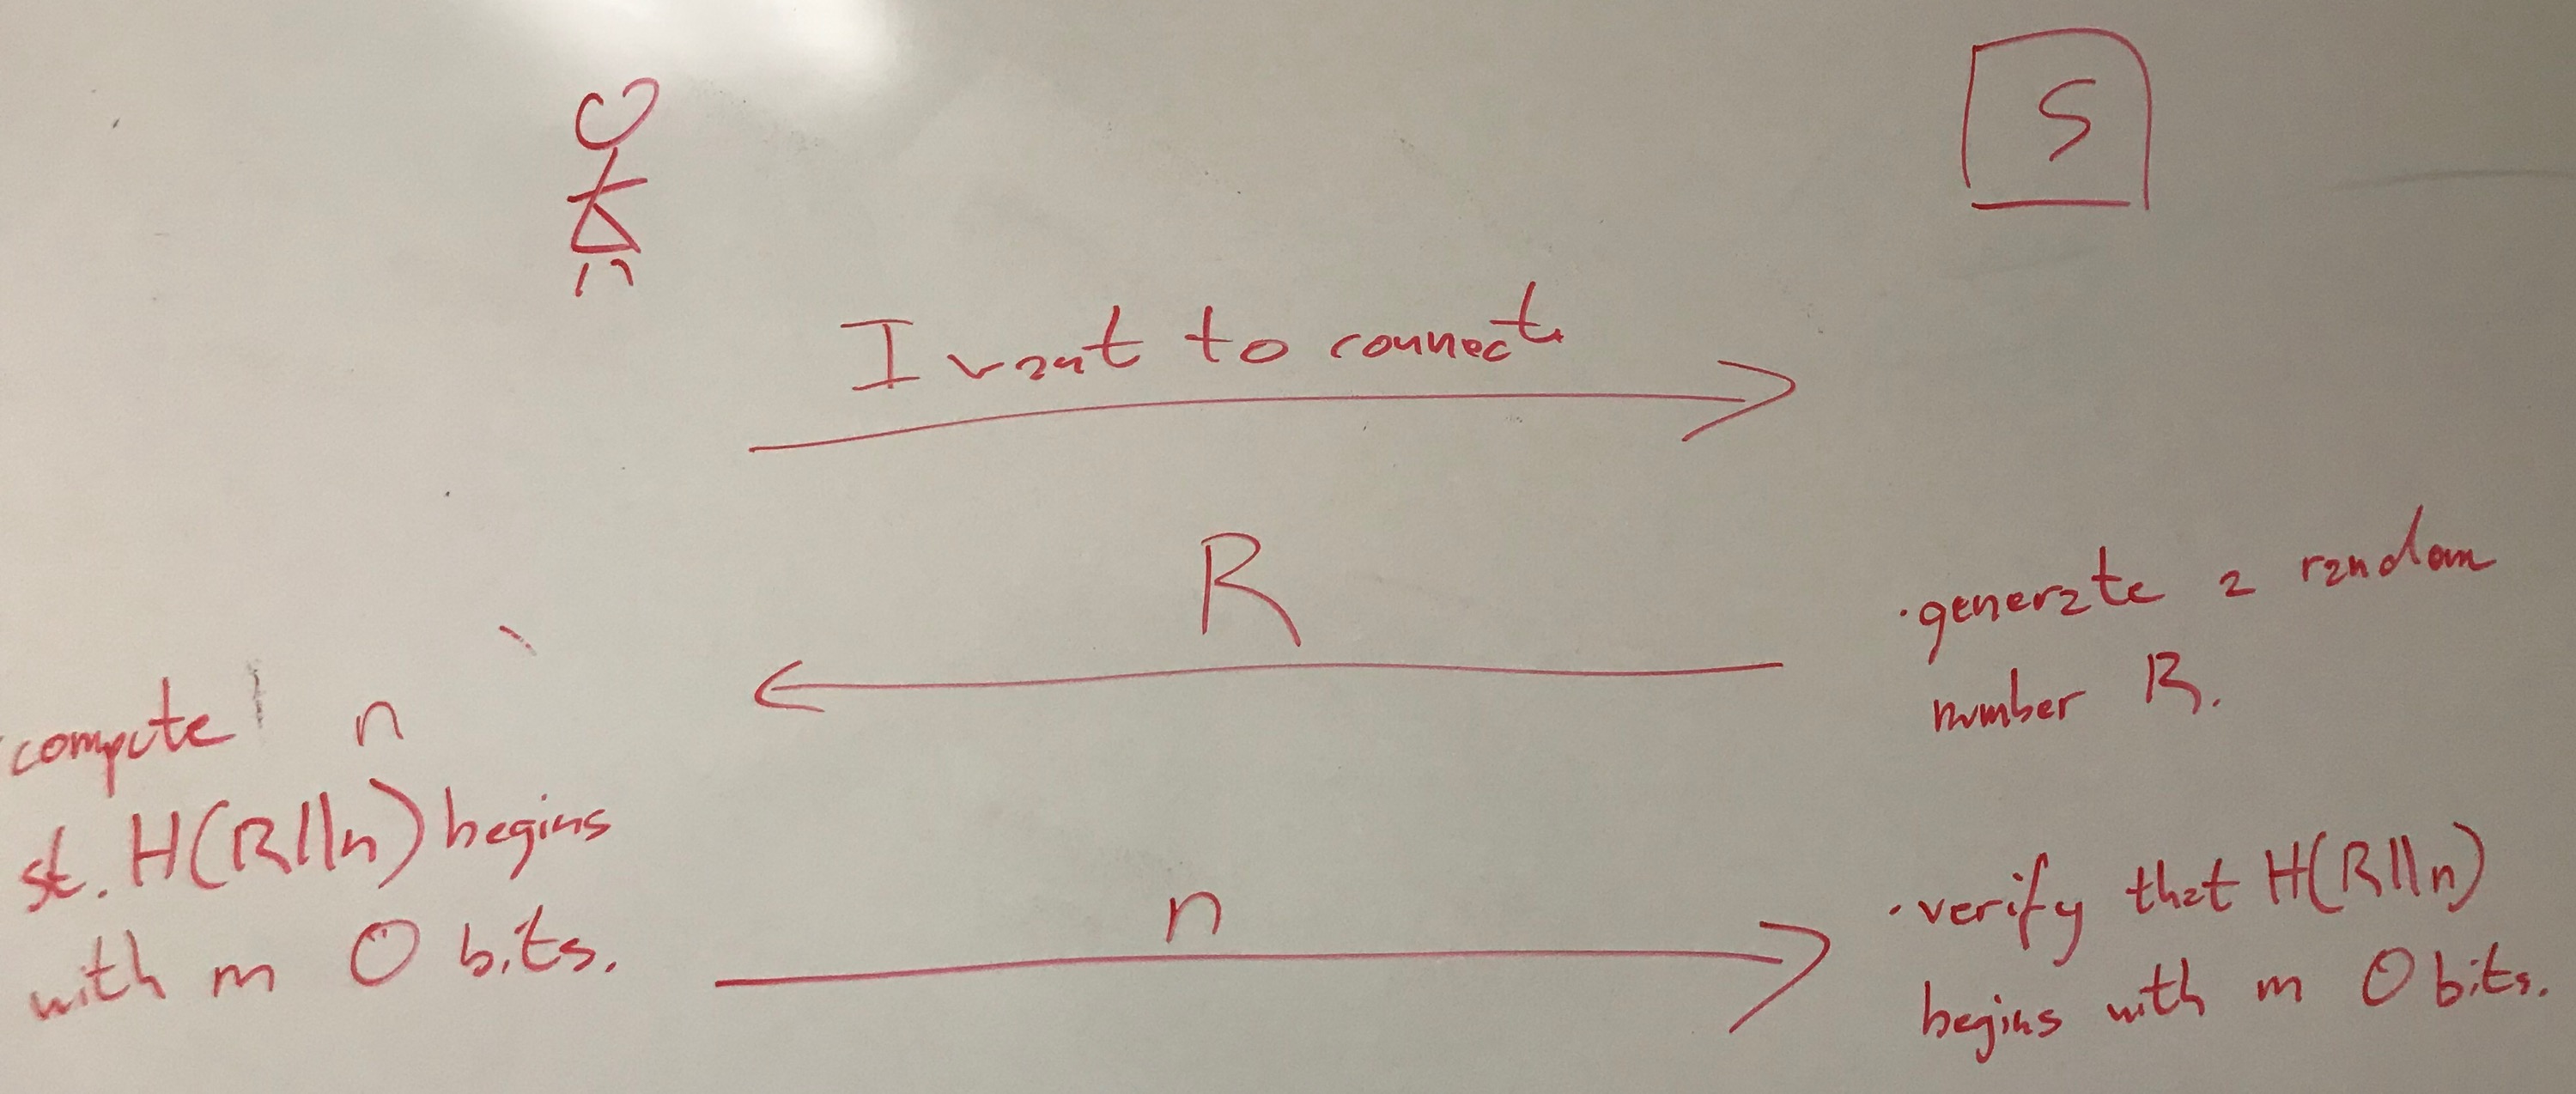 S
I want to connect
R
·generate a random
number R.
compute n
st. H(R||n) begins
with m 0 bits.
n
·verify that H(R||n)
begins with m 0 bits.